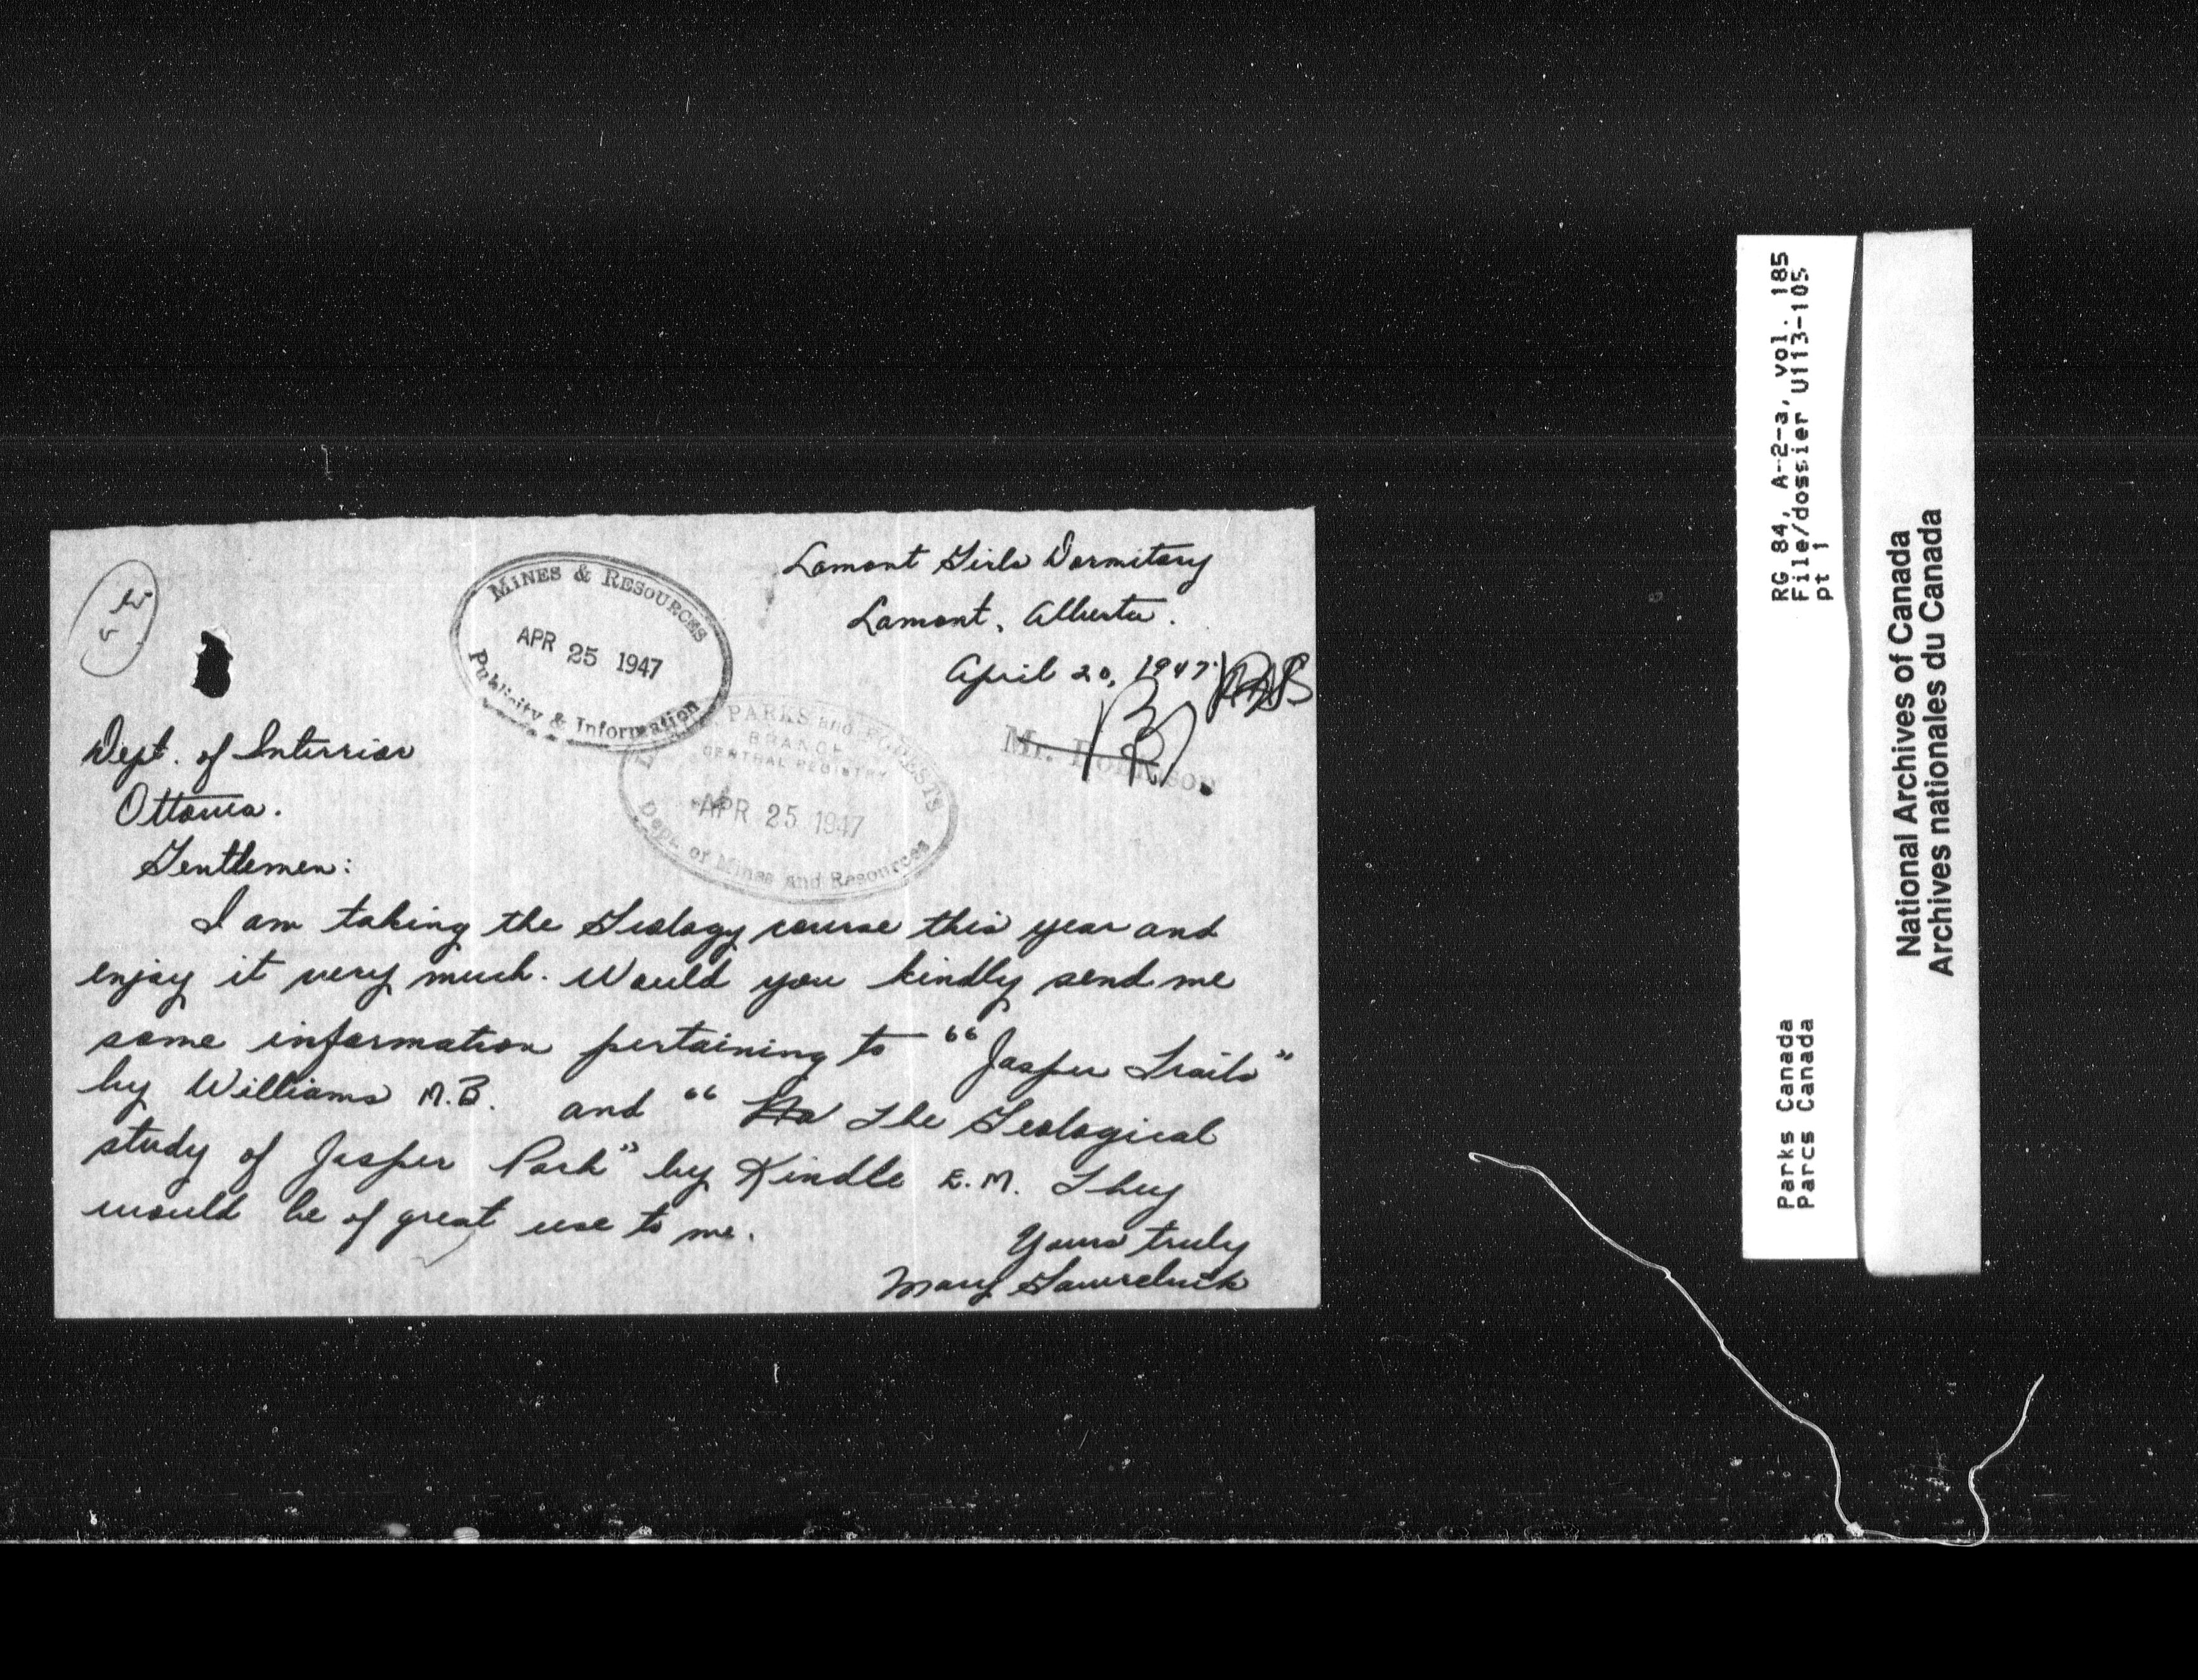 Lamont Girls Dormitory
Lamont, Alberta.
April 20, 1947.
MINES & RESOURCES
APR 25 1947
Publicity & Information
PARKS and FORESTS
BRANCH
CENTRAL REGISTRY
APR 25 1947
Dept. of Mines and Resources
Mr. Robinson
Dept. of Interrior
Ottawa.
Gentlemen:
I am taking the Geology course this year and
enjoy it very much. Would you kindly send me
some information pertaining to "Jasper Trails"
by Williams M.B. and " The Geological
study of Jasper Park" by Kindle E.M. They
would be of great use to me.
Yours truly
Mary
RG 84, A-2-a, vol. 185
File/dossier U113-105
pt 1
Parks Canada
Parcs Canada
National Archives of Canada
Archives nationales du Canada